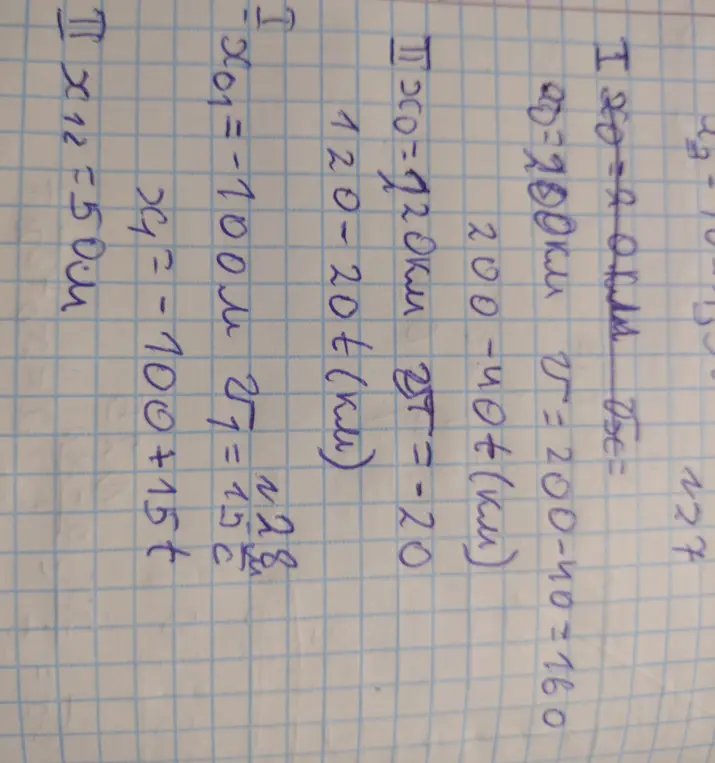 №27
I x0=20км vx=
x0=200км v=200-40=160
200-40t(км)
II x0=120км v=-20
120-20t(км)
№28
I x01=-100м v1=15 м/с
x1=-100+15t
II x12=50м